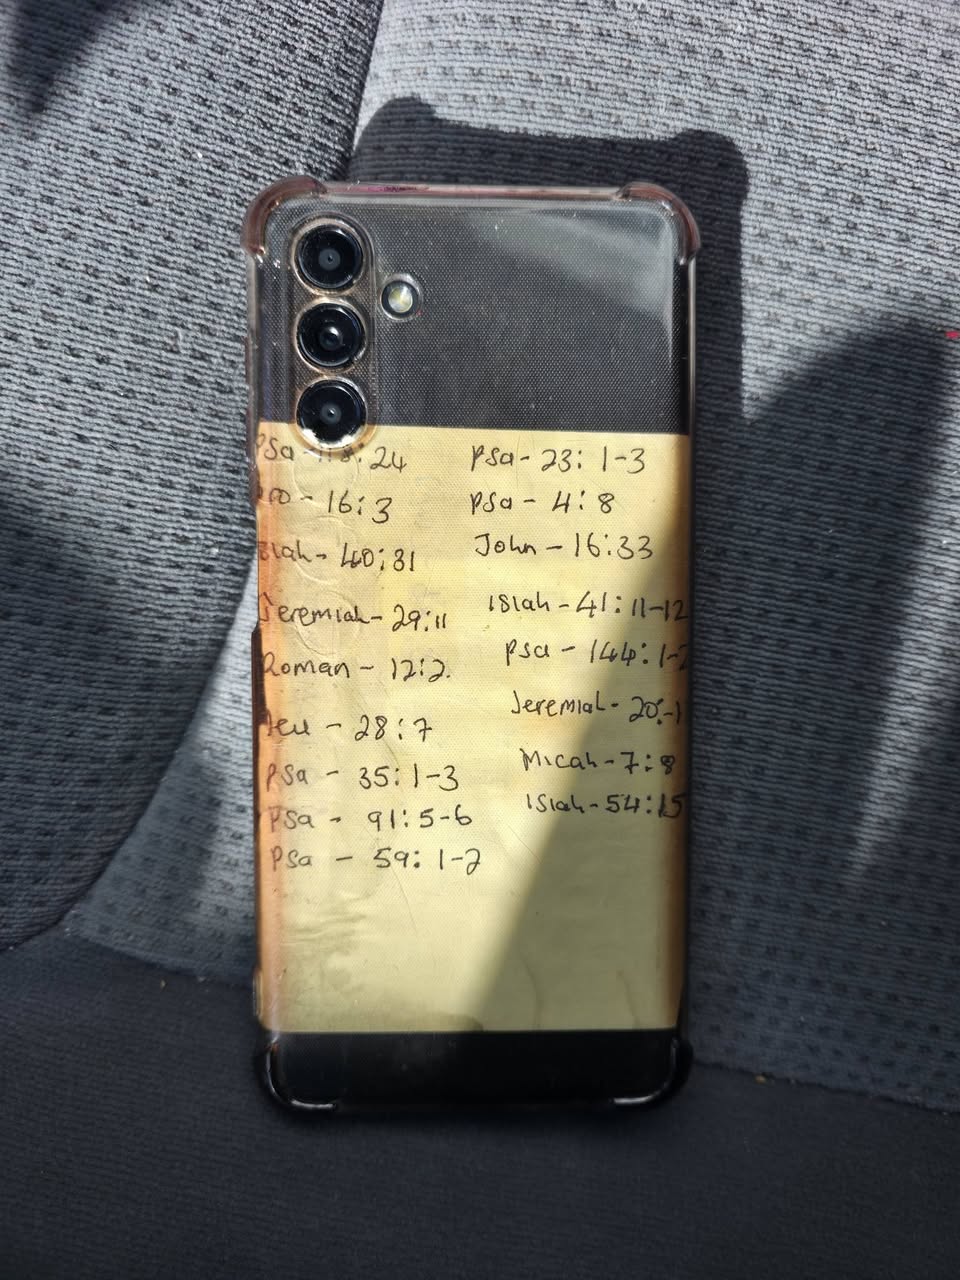 Psa - 118:24
Pro - 16:3
Isiah - 40:31
Jeremiah - 29:11
Roman - 12:2.
- 28:7
Psa - 35:1-3
Psa - 91:5-6
Psa - 59:1-2
Psa - 23:1-3
Psa - 4:8
John - 16:33
Isiah - 41:11-12
Psa - 144:1-2
Jeremiah -
Micah - 7:8
Isiah - 54:15